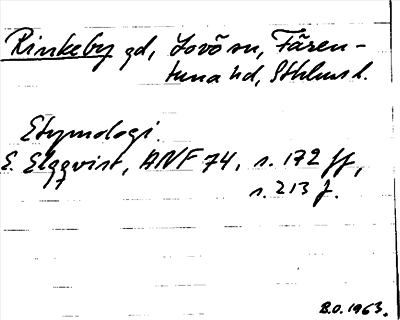 Rinkeby gd, Lovö sn, Fären-
tuna hd, Sthlms l.
Etymologi.
E. Elqqvist, ANF 74, s. 172 ff,
s. 213 f.
B.O. 1963.